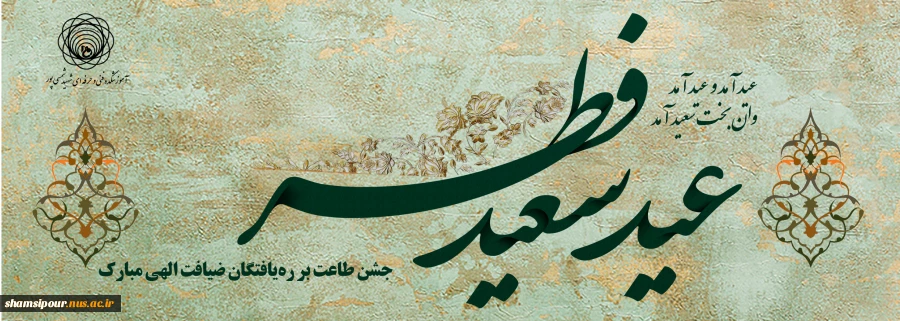 آموزشکده فنی و حرفه ای شهید شمسی پور
عید آمد و عید آمد
وان بخت سعید آمد
عید سعید فطر
جشن طاعت بر ره یافتگان ضیافت الهی مبارک
shamsipour.nus.ac.ir